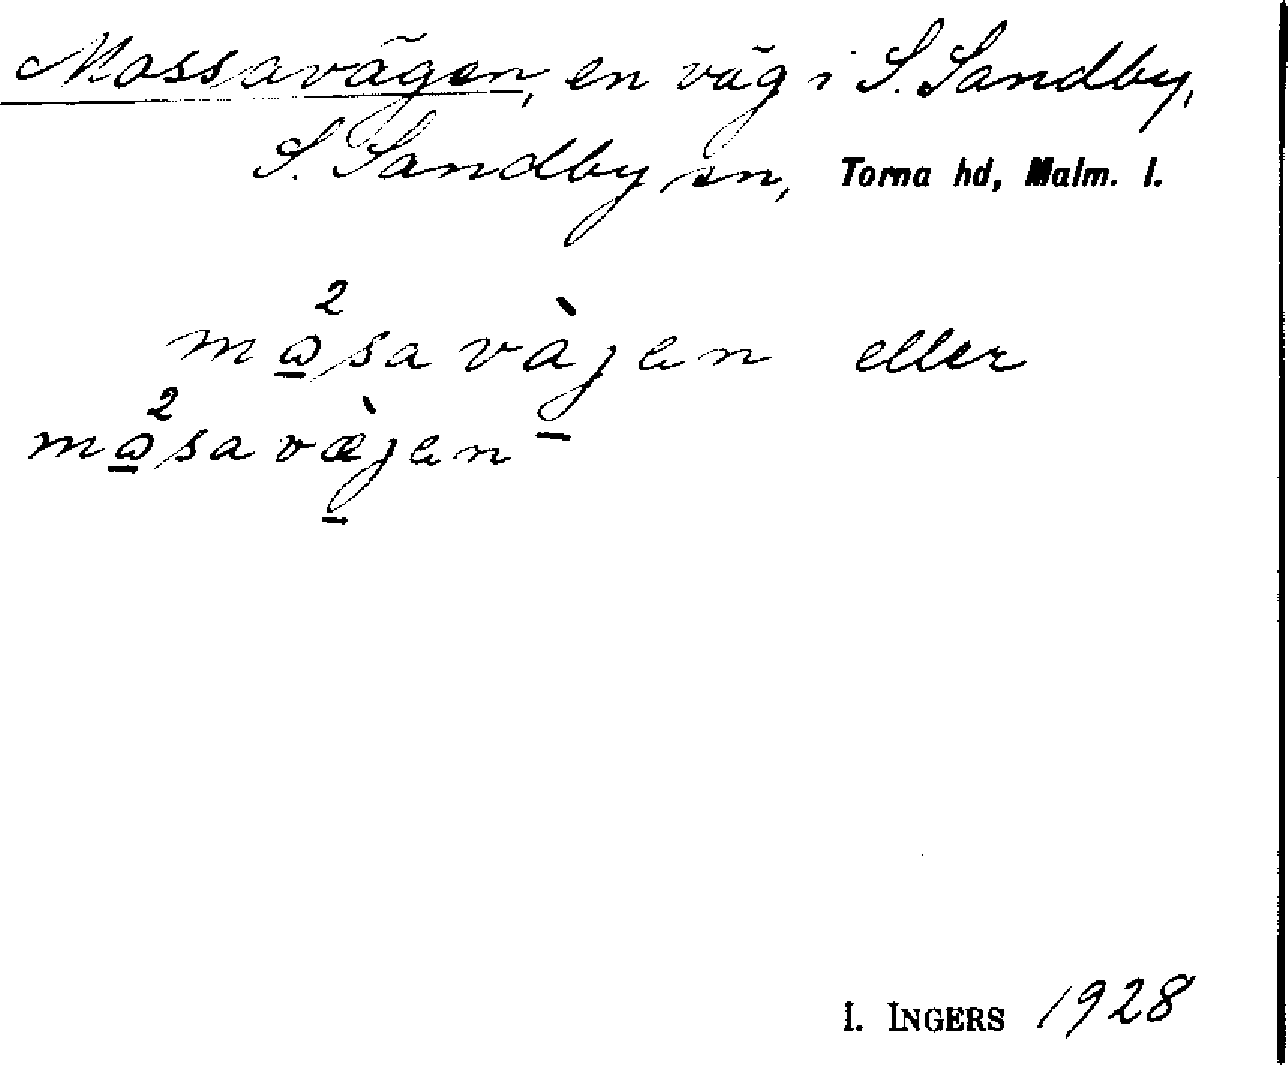 Mossavägen, en väg i S. Sandby,
S. Sandby sn, Torna hd, Malm. l.
mɷ̲²savàjen eller
mɷ̲²savæ̀jen
I. INGERS 1928